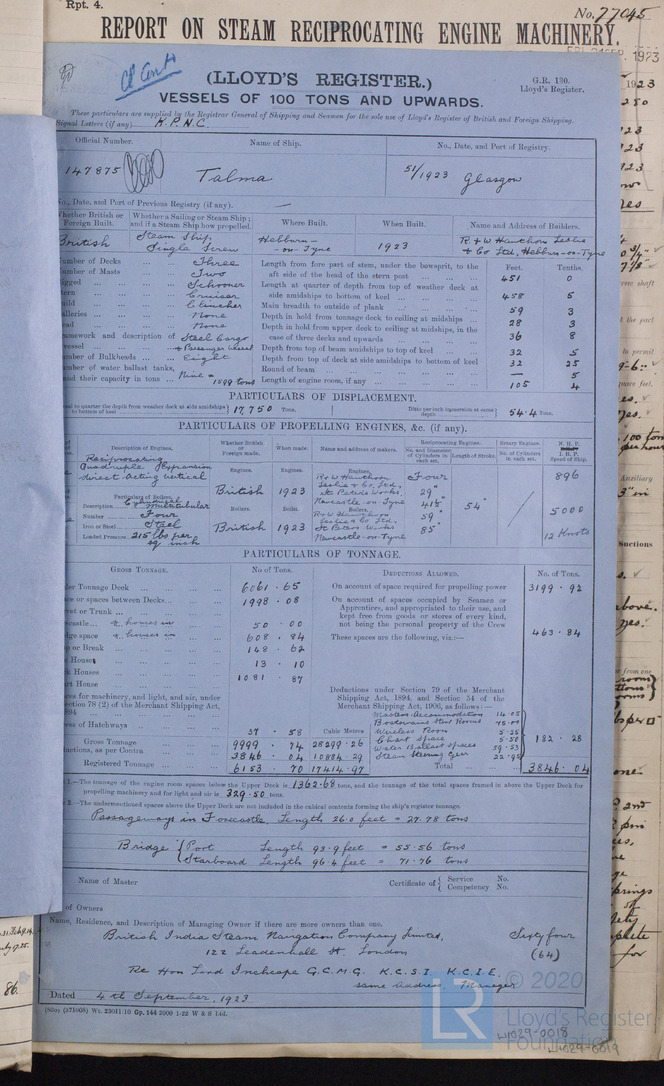 Rpt. 4.
No. 77045
REPORT ON STEAM RECIPROCATING ENGINE MACHINERY.
(LLOYD'S REGISTER.)
G.R. 130.
Lloyd's Register.
VESSELS OF 100 TONS AND UPWARDS.
These particulars are supplied by the Registrar General of Shipping and Seamen for the sole use of Lloyd's Register of British and Foreign Shipping.
Signal Letters (if any) K.P.N.C.
Official Number. Name of Ship. No., Date, and Port of Registry.
147875 Talma 51/1923 Glasgow
No., Date, and Port of Previous Registry (if any). —
Whether British or Foreign Built. Whether a Sailing or Steam Ship; and if a Steam Ship how propelled. Where Built. When Built. Name and Address of Builders.
British Steam Ship Single Screw Hebburn-on-Tyne 1923 R & W Hawthorn Leslie & Co Ltd, Hebburn-on-Tyne
Number of Decks Three
Number of Masts Two
Rigged Schooner
Stern Cruiser
Build Clincher
Galleries None
Head None
Framework and description of vessel Steel Cargo & Passenger vessel
Number of Bulkheads Eight
Number of water ballast tanks, and their capacity in tons Nine = 1899 tons
Feet. Tenths.
Length from fore part of stem, under the bowsprit, to the aft side of the head of the stern post 451 0
Length at quarter of depth from top of weather deck at side amidships to bottom of keel 458 5
Main breadth to outside of plank 59 3
Depth in hold from tonnage deck to ceiling at midships 28 3
Depth in hold from upper deck to ceiling at midships, in the case of three decks and upwards 36 8
Depth from top of beam amidships to top of keel 32 5
Depth from top of deck at side amidships to bottom of keel 32 25
Round of beam — 5
Length of engine room, if any 105 4
PARTICULARS OF DISPLACEMENT.
to quarter the depth from weather deck at side amidships to bottom of keel 17,750 Tons. Ditto per inch immersion at same depth 54.4 Tons.
PARTICULARS OF PROPELLING ENGINES, &c. (if any).
Description of Engines. Whether British or Foreign made. When made. Name and address of makers. Reciprocating Engines. Rotary Engines. N.H.P. I.H.P. Speed of Ship.
No. and Diameter of Cylinders in each set. Length of Stroke. No. of Cylinders in each set.
Reciprocating Quadruple Expansion direct acting vertical
Engines. British 1923 R & W Hawthorn Leslie & Co. Ltd, St Peters Works, Newcastle on Tyne
Four 29" 41½" 59" 85" 54" / 896 5000 12 Knots
Particulars of Boilers.
Description Cylindrical multitubular
Number Four
Iron or Steel Steel
Loaded Pressure 215 lbs per sq inch
Boilers. British 1923 R & W Hawthorn Leslie & Co Ltd. St Peters Works Newcastle-on-Tyne
PARTICULARS OF TONNAGE.
GROSS TONNAGE. No of Tons. DEDUCTIONS ALLOWED. No. of Tons.
Under Tonnage Deck 6061.65
Space or spaces between Decks 1998.08
Turret or Trunk
Forecastle & houses in 50.00
Bridge space & houses in 608.84
Poop or Break 148.62
Houses 13.10
Deck Houses 1081.87
Chart House
Spaces for machinery, and light, and air, under Section 78 (2) of the Merchant Shipping Act, 1894
Excess of Hatchways 37.58
Cubic Metres
Gross Tonnage 9999.74 28299.26
Deductions, as per Contra 3846.04 10884.29
Registered Tonnage 6153.70 17414.97
On account of space required for propelling power 3199.92
On account of spaces occupied by Seamen or Apprentices, and appropriated to their use, and kept free from goods or stores of every kind, not being the personal property of the Crew 463.84
These spaces are the following, viz.:—
Deductions under Section 79 of the Merchant Shipping Act, 1894, and Section 54 of the Merchant Shipping Act, 1906, as follows:—
Masters Accommodation 14.05
Boatswains Stores
Wireless Room 5.25
Chart space 5.50
Water Ballast spaces 59.53
Steam Steering Gear 22.95
182.28
Total 3846.04
1.—The tonnage of the engine room spaces below the Upper Deck is 1362.68 tons, and the tonnage of the total spaces framed in above the Upper Deck for propelling machinery and for light and air is 329.50 tons.
2.—The undermentioned spaces above the Upper Deck are not included in the cubical contents forming the ship's register tonnage.
Passageways in Forecastle, Length 26.0 feet = 27.78 tons
Bridge { Port Length 93.9 feet = 55.56 tons
Starboard Length 96.4 feet = 71.76 tons
Name of Master Certificate of { Service No. Competency No.
of Owners
Name, Residence, and Description of Managing Owner if there are more owners than one.
British India Steam Navigation Company Limited, Sixty four
122 Leadenhall St, London (64)
Rt Hon Lord Inchcape G.C.M.G. K.C.S.I. K.C.I.E.
same address, Manager
Dated 4th September, 1923
Gp. 144 2000 1-22 W & S Ltd.
© 2020
LR Lloyd's Register Foundation
W1029-0018
W1029-0019